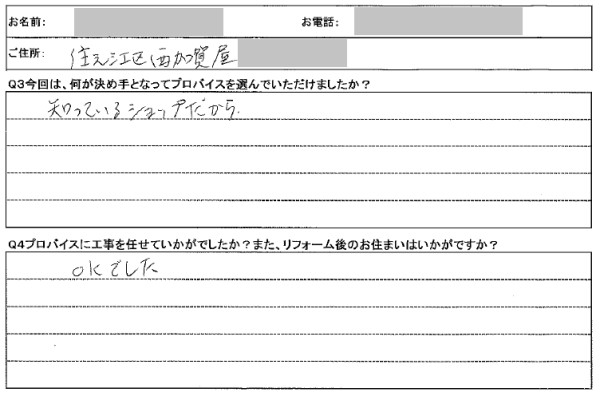 お名前: お電話:
ご住所: 住之江区西加賀屋
Q3今回は、何が決め手となってプロパイスを選んでいただけましたか？
知っているショップだから.
Q4プロパイスに工事を任せていかがでしたか？また、リフォーム後のお住まいはいかがですか？
OKでした